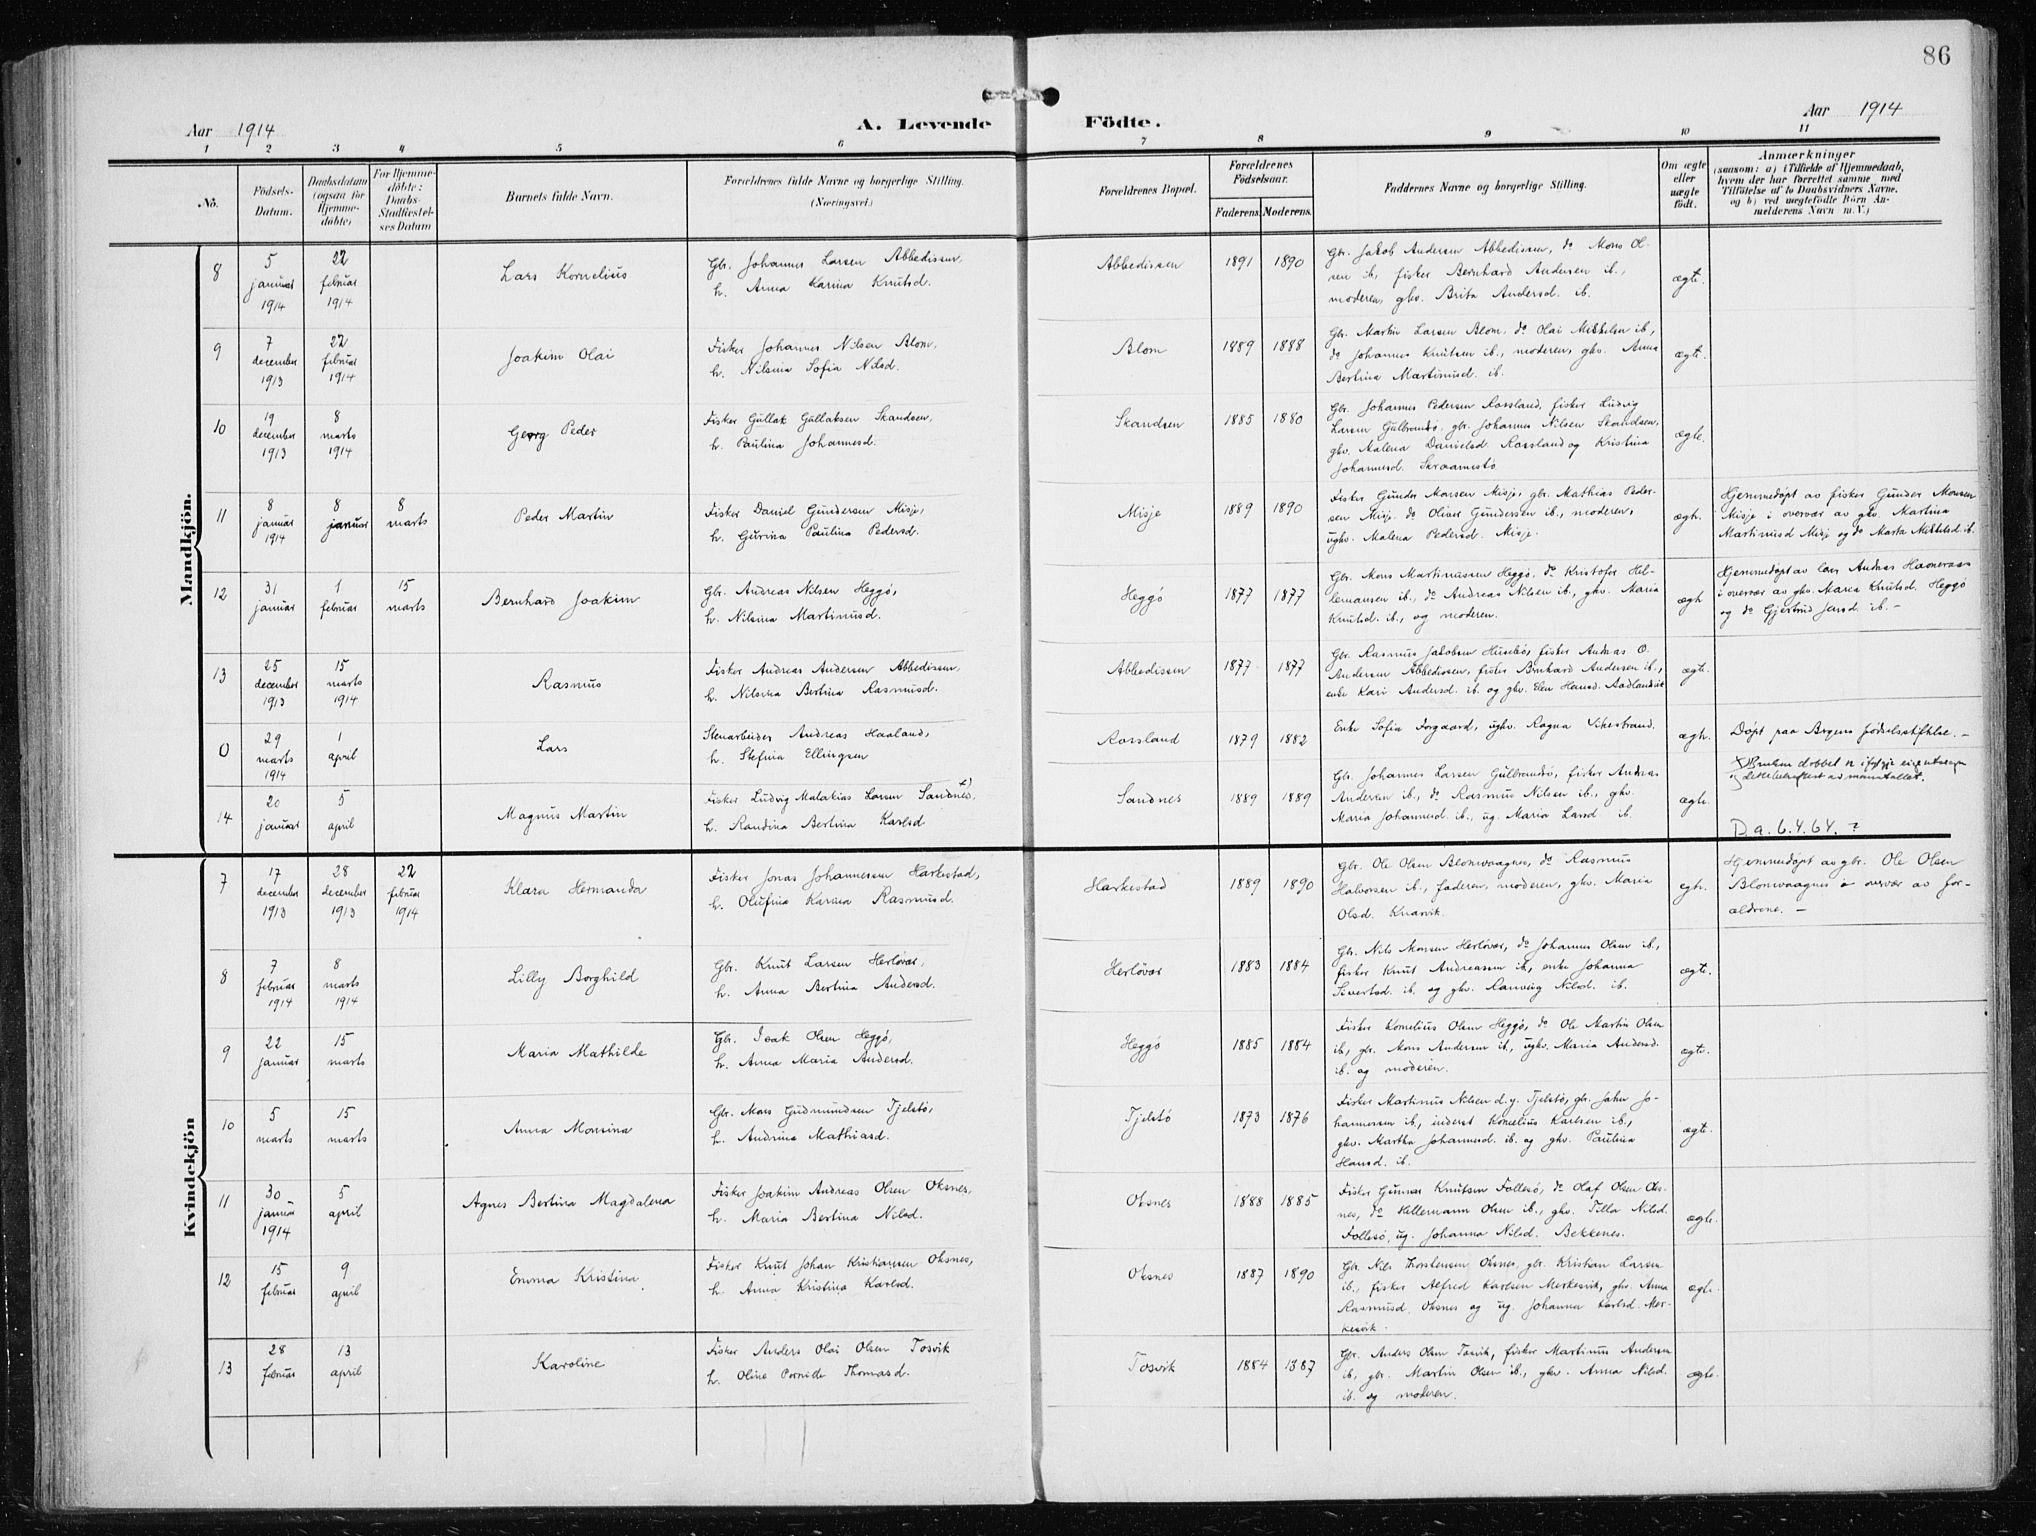 86
Aar 1914
A. Levende Födte.
Aar 1914
1 2 3 4 5 6 7 8 9 10 11
No.
Födsels-
Datum.
Daabsdatum
(ogsaa for
Hjemme-
döbte)
For Hjemme-
döbte:
Daabs-
Stadfestel-
ses Datum
Barnets fulde Navn.
Forældrenes fulde Navne og borgerlige Stilling.
(Næringsvei.)
Forældrenes Bopæl.
Forældrenes
Födselsaar.
Faderens. Moderens.
Faddernes Navne og borgerlige Stilling.
Om ægte
eller
uægte
födt.
Anmærkninger
(saasom: a) i Tilfælde af Hjemmedaab,
hvem der har forrettet samme, med
Tilföielse af to Daabsvidners Navne.
og b) ved uægtefödte Börn An-
melderens Navn m. V.)
Mandkjön.
8
5
januar
1914
22
februar
1914
Lars Kornelius
Gbr. Johannes Larsen Abbedissen,
h. Anna Karina Knutsd.
Abbedissen
1891 1890
Gbr. Jakob Andersen Abbedissen, do Mons Ol-
sen ib, fisker Bernhard Andersen ib.,
moderen, ghv. Brita Andersd. ib.
ægte.
9
7
december
1913
22
februar
1914
Joakim Olai
Fisker Johannes Nilsen Blom,
h. Nilsina Sofia Nilsd.
Blom
1889 1888
Gbr. Martin Larsen Blom, do Olai Mikkelsen ib.,
do Johannes Knutsen ib., moderen, ghv. Anna
Bertina Martinusd. ib.
ægte.
10
19
december
1913
8
marts
1914
Georg Peder
Fisker Gullak Gullaksen Skandsen,
h. Paulina Johannesd.
Skandsen
1885 1880
Gbr. Johannes Pedersen Rossland, fisker Ludvig
Larsen Gulbrandsö, gbr. Johannes Nilsen Skandsen,
ghv. Malena Danielsd. Rossland og Kristina
Johannesd. Skraamestö.
ægte.
11
8
januar
1914
8
januar
8
marts
Peder Martin
Fisker Daniel Gundersen Misje,
h. Gurina Paulina Pedersd.
Misje
1889 1890
Fisker Gunder Monsen Misje, gbr. Mathias Peder-
sen Misje, do Oliver Gundersen ib., moderen,
ughv. Malena Pedersd. Misje.
ægte.
Hjemmedøpt av fisker Gunder Monsen
Misje i overvær av ghv. Martina
Martinusd Misje og do Marta Mikkelsd ib.
12
31
januar
1
februar
15
marts
Bernhard Joakim
Gbr. Andreas Nilsen Heggö,
h. Nilsina Martinusd.
Heggö
1877 1877
Gbr. Mons Martinussen Heggö, do Kristofer Hel-
lemansen ib., do Andreas Nilsen ib., ghv. Maria
Knutsd. ib., og moderen.
ægte
Hjemmedøpt av lær. Andreas
i overvær av ghv. Maria Knutsd. Heggö
og do Gjertrud Jensd. ib. -
13
25
december
1913
15
marts
1914
Rasmus
Fisker Andreas Andersen Abbedissen,
h. Nilsina Bertina Rasmusd.
Abbedissen
1877 1877
Gbr. Rasmus Jakobsen Husebö, fisker Andreas O.
Andersen Abbedissen, fisker Bernhard Andersen ib.,
enke Kari Andersd. ib. og ghv. Elen Hansd. Aadlandsvik
ægte.
0
29
marts
1914
1
april
Lars
Stenarbeider Andreas Haaland,
h. Stefina Ellingsen
Rossland
1879 1882
Enke Sofia Torgaard, ughv. Ragna Vikestrand.
ægte.
Døpt paa Bergens fødselsstiftelse. -
14
20
januar
5
april
Magnus Martin
Fisker Ludvig Malakias Larsen Sandnes,
h. Randina Bertina Karlsd
Sandnes
1889 1889
Gbr. Johannes Larsen Gulbrandsö, fisker Andreas
Andersen ib., do Rasmus Nilsen ib., ghv.
Maria Johannesd. ib., ug. Maria Larsd ib.
ægte.
D. a. 6.4.64.
Kvindekjön
7
17
december
1913
28
december
1913
22
februar
1914
Klara Hermanda
Fisker Jonas Johannessen Harkestad,
h. Olufina Karina Rasmusd.
Harkestad
1889 1890
Gbr. Ole Olsen Blomvaagnes, do Rasmus
Halvorsen ib., faderen, moderen, ghv. Maria
Olsd. Knarvik.
egte.
Hjemmedøpt av gbr. Ole Olsen
Blomvaagnes i overvær av for-
ældrene. -
8
7
februar
1914
8
marts
1914
Lilly Borghild
Gbr. Knut Larsen Herlövær,
h. Anna Bertina Andersd.
Herlövær
1883 1884
Gbr. Nils Monsen Herlövær, do Johannes Olsen ib.,
fisker Knut Andreassen ib., enke Johanna
Sivertsd. ib. og ghv. Ranveig Nilsd. ib.
ægte.
9
22
januar
15
marts
Maria Mathilde
Gbr. Isak Olsen Heggö,
h. Anna Maria Andersd.
Heggö
1885 1884
Fisker Kornelius Olsen Heggö, do Ole Martin Olsen
ib., gbr. Mons Andersen ib., ughv. Maria Andersd.
ib. og moderen.
ægte.
10
5
marts
15
marts
Anna Monsina
Gbr. Mons Gudmundsen Tjelstö,
h. Andrina Mathiasd.
Tjelstö
1873 1876
Fisker Martinus Nilsen d.y. Tjelstö, gbr. John Jo-
hannessen ib., inderst Kornelius Karlsen ib.,
ghv. Martha Johannesd. ib. og ghv. Paulina
Hansd. ib.
ægte.
11
30
januar
1914
5
april
Agnes Bertina Magdalena
Fisker Joakim Andreas Olsen Oksnes,
h. Maria Bertina Nilsd.
Oksnes
1888 1885
Fisker Gunnar Knutsen Follesö, do Olaf Olsen Oks-
nes, do Hellemann Olsen ib., ghv. Tilla Nilsd.
Follesö, ug. Johanna Nilsd. Bekkenes.
ægte.
12
15
februar
9
april
Emma Kristina
Fisker Knut Johan Kristiansen Oksnes,
h. Anna Kristina Karlsd.
Oksnes
1887 1890
Gbr. Nils Thorstensen Oksnes, gbr. Kristian Larsen
ib., fisker Alfred Karlsen Merkesvik, ghv. Anna
Rasmusd. Oksnes og ug. Johanna Karlsd. Mer-
kesvik.
ægte.
13
28
februar
13
april
Karoline
Fisker Anders Olai Olsen Tosvik
h. Oline Pernille Thomasd.
Tosvik
1884 1887
Gbr. Anders Olsen Tosvik, fisker Martinus Andersen
ib., gbr. Martin Olsen ib., ghv. Anna Nilsd.
ib. og moderen.
ægte.